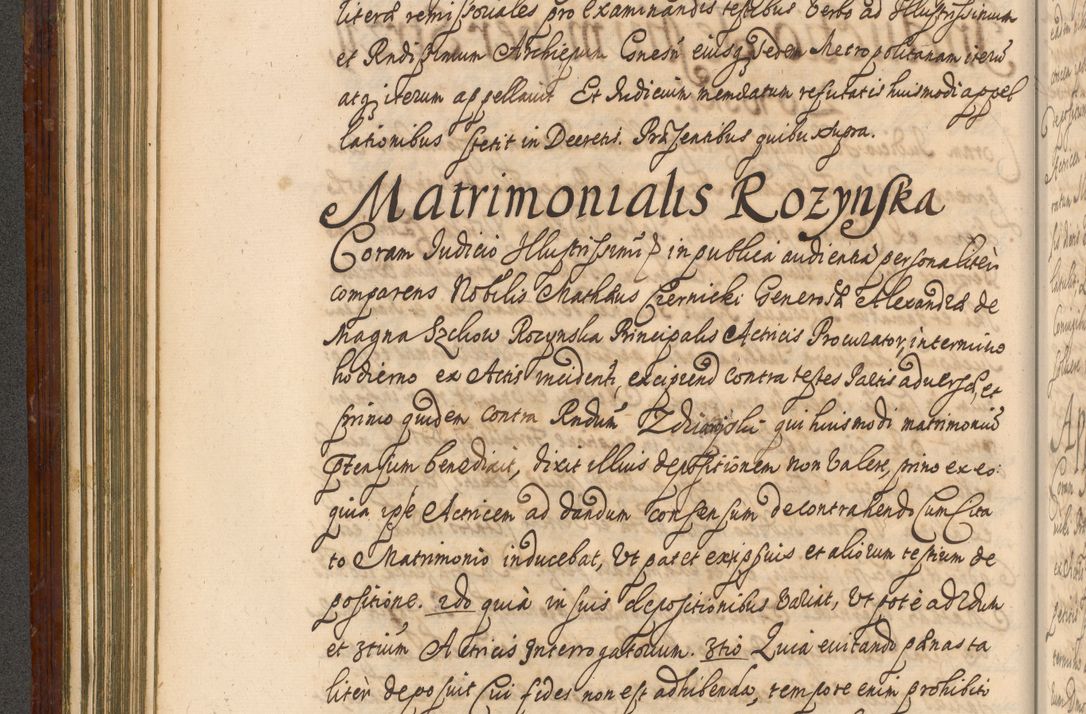 literas remissoriales pro examinandis testibus Verbo ad Illustrissimum
et Rndissimum Archiepum Gnesn eiusq Sedem Metropolitanam iterū
atq iterum appellavit Et Judicium mandatum refutatis huismodi appel
lationibus stetit in Decretis. Præsentibus quibus supra.
Matrimonialis Rozynska
Coram Judicio Illustrissimi in publica audientia personaliter
comparens Nobilis Mathæus Czernicki Generosæ Alexandræ de
Magna Szchow Rozynska Principalis Actricis Procurator, in termino
hodierno ex Actis incidenti, excipiend contra testes Partis adversæ, et
primo quidem contra Rndum qui huismodi matrimoniū
ptensum benedixit, dixit illius depositionem non Valere, primo ex eo
quia ipse Actricem ad dandum consensum de contrahendo cum Cita
to Matrimonio inducebat, Ut patet ex ipsius et aliorum testium de
positione. 2do quia in suis depositionibus Variat, Ut pote ad 2dum
et 3tium Actricis Interrogatorium. 3tio Quia evitando pænas ta
liter deposuit Cui fides non est adhibenda, tempore enim prohibiti